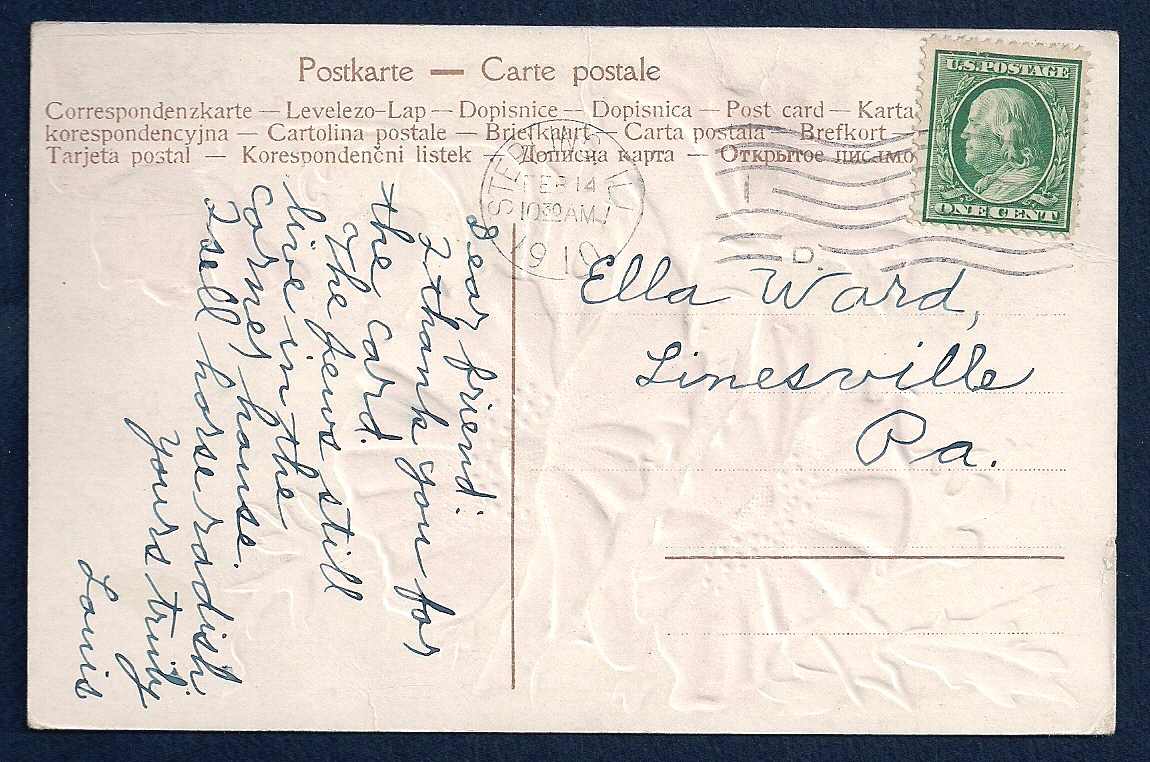 Postkarte — Carte postale
Correspondenzkarte — Levelezo-Lap — Dopisnice — Dopisnica — Post card — Karta
korespondencyjna — Cartolina postale — Briefkaart — Carta postala — Brefkort —
Tarjeta postal — Korespondenčni listek — Дописна карта — Открытое письмо
U.S. POSTAGE
ONE CENT
FEB 14
10 30 AM
1910
D.
Dear friend:
I thank you for
the card.
The Jews still
live in the
corner house.
I sell horse radish
Yours truly
Louis
Ella Ward,
Linesville
Pa.